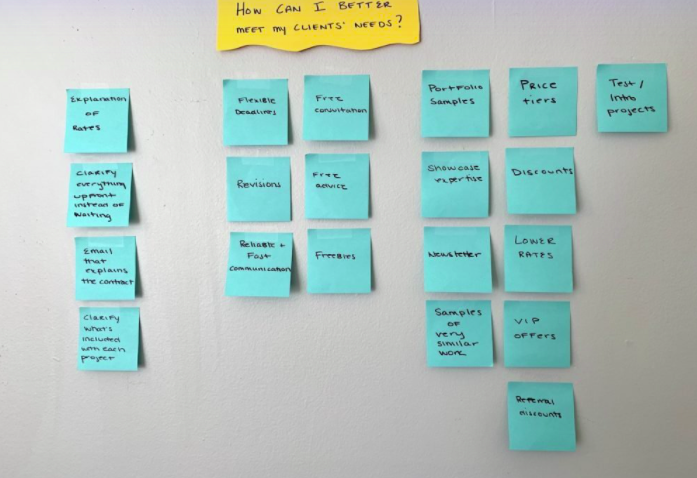 HOW CAN I BETTER
MEET MY CLIENTS' NEEDS?
Explanation
OF
Rates
Clarify
everything
upfront
instead of
waiting
Email
that
explains
the contract
Clarify
what's
included
with each
project
Flexible
Deadlines
Revisions
Reliable +
Fast
communication
Free
consultation
Free
advice
Freebies
Portfolio
Samples
Showcase
expertise
Newsletter
Samples
of
very
similar
work
PRICE
tiers
DISCOUNTS
LOWER
RATES
VIP
OFFERS
Referral
discounts
Test/
Intro
projects